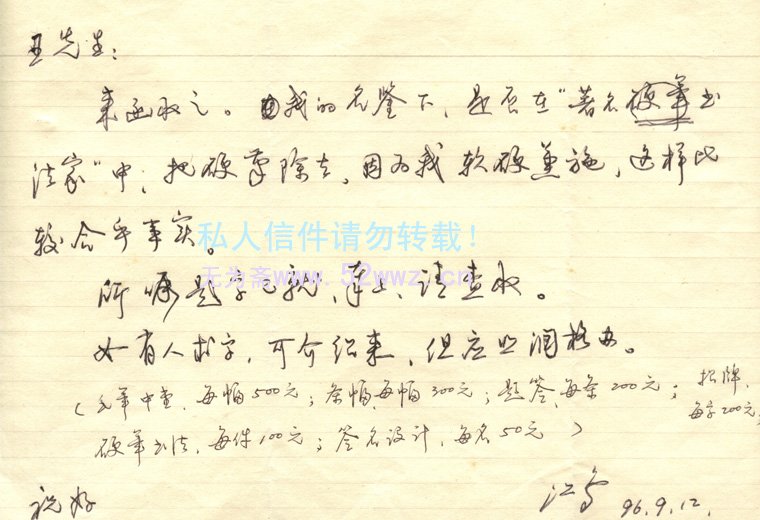 王先生：
来函收之。我的名鉴下，是否在“著名硬笔书
法家”中，把硬笔除去，因为我软硬兼施，这样比
较合乎事实。
私人信件请勿转载！
无为斋www.52wwz.cn
所嘱题字已就，奉上、请查收。
如有人求字，可介绍来，但应照润格办。
（毛笔中堂，每幅500元；条幅，每幅300元；题签，每条200元；招牌，每字200元；
硬笔书法，每件100元；签名设计，每名50元）
祝好
96.9.12.